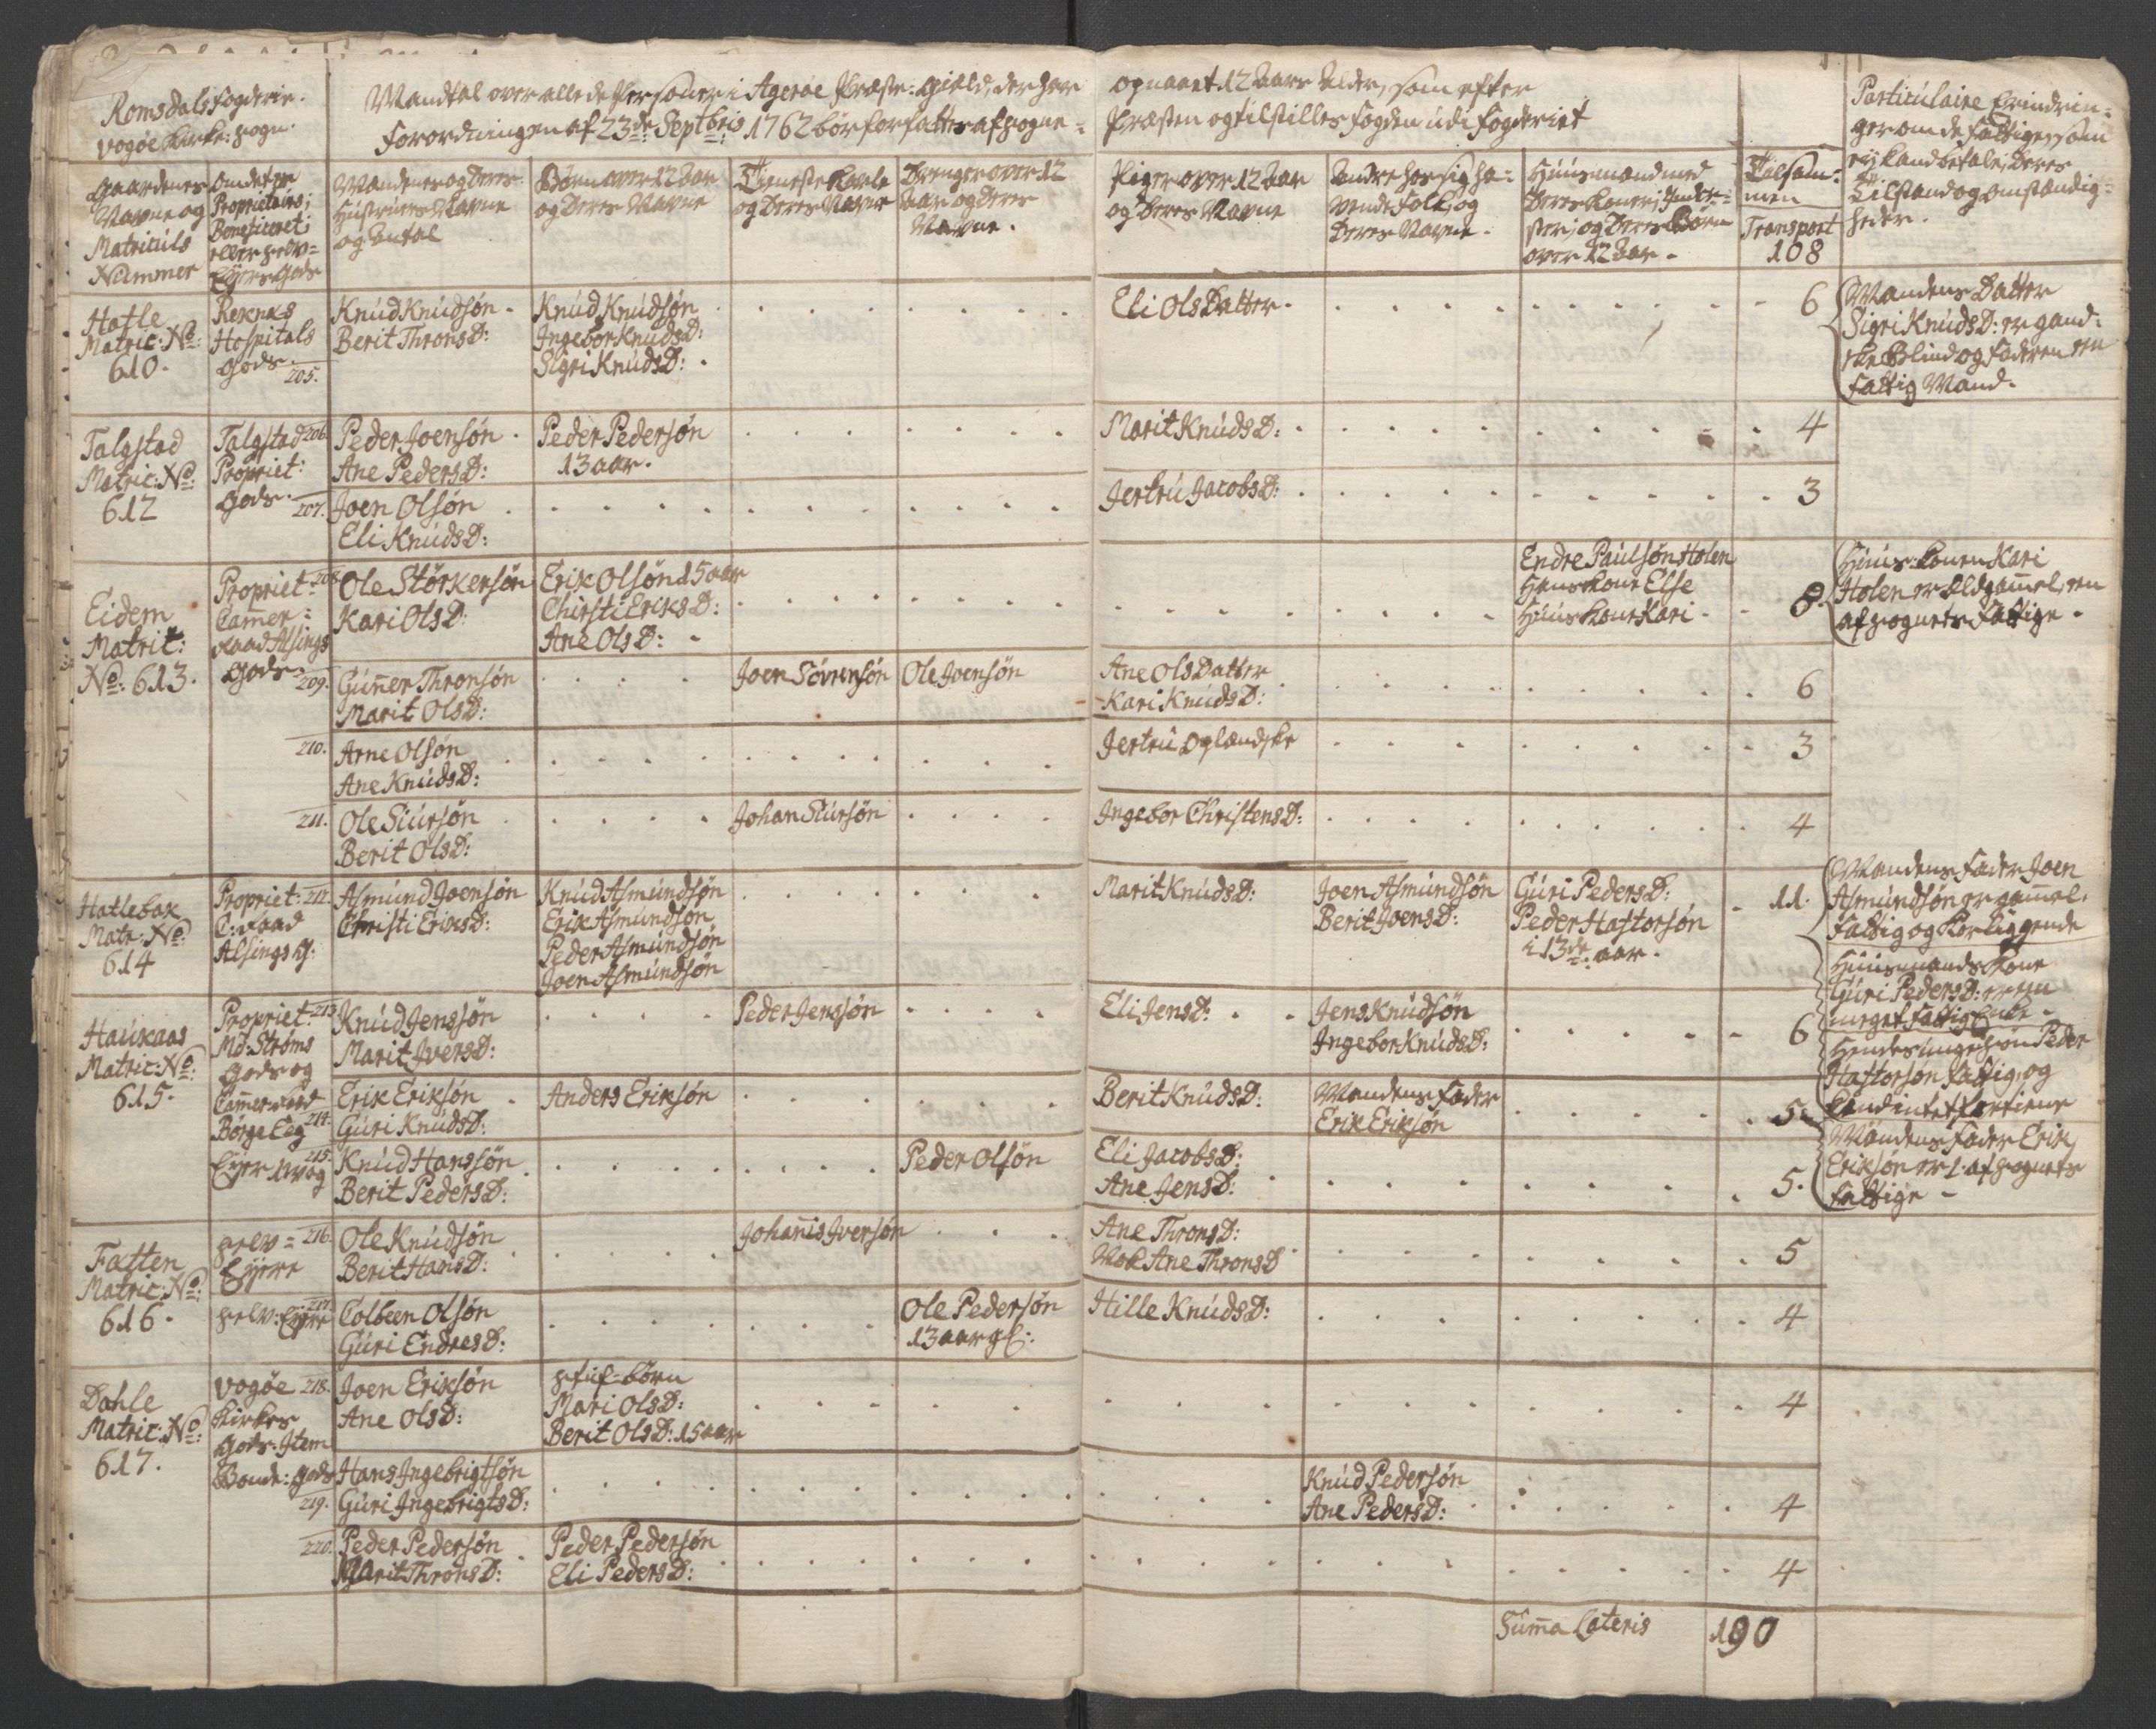 Romsdals Fogderie.
Vogøe Kirke-Sogn.
Mandtal over alle de Personer i Agerøe Præste-Gield, der har
opnaaet 12 Aars Alder, som efter
Forordningen af 23de Septbris 1762 bør forfattes af Sogne-
Præsten og tilstilles Fogden udi Fogderiet
Particulaire Erindrin-
ger om de Fattige, som
ey kand betale, Deres
Tilstand og omstændig-
heder.
Gaardenes
Navne og
Matriculs
Nummer
Om det er
Proprietairs;
Beneficeret;
eller Selv-
Eyers Gods
Mandenes og Deres
Hustruers Navne
og Antal
Børn over 12 Aar
og Deres Navne
Tieneste Karle
og Deres Navne
Drenger over 12
Aar og Deres
Navne.
Piger over 12 Aar
og Deres Navne
Andre hos sig ha-
vende Folk, og
Deres Navne.
Huusmænd med
Deres Koner; Inder-
ster; og Deres Børn
over 12 Aar.
Tilsam-
men
Transport
108
Hatle
Matric: No:
610.
Reknes
Hospitals
Gods.
205.
Knud Knudsøn.
Berit Throns D:
Knud Knudsøn
Ingebor Knuds D:
Sigri Knuds D:
Eli Ols Datter.
6
Mandens Datter
Sigri Knuds D: er gand-
ske Blind og Faderen een
Fattig Mand.
Talgstad
Matric: No:
612
Talgstad
Propriet:
Gods.
206.
Peder Joensøn.
Ane Peders D:
Peder Pedersøn
13 aar.
Marit Knuds D:
4
207.
Joen Olsøn
Eli Knuds D:
Jertru Jacobs D:
3
Eidem
Matric:
No: 613.
Propriet:
Cammer-
raad Alsings
Gods.
208.
Ole Størkersøn
Kari Ols D:
Erik Olsøn 15 aar
Chirsti Eriks D:
Ane Ols D:
Endre Paulsøn Holen
Hans Kone Else
Huus Kone Kari
8.
Huus-Konen Kari
Holen er Eldgammel, een
af Sognets Fattige.
209.
Gunner Thronsøn
Marit Ols D:
Joen Sørensøn
Ole Joensøn
Ane Ols Datter
Kari Knuds D:
6
210.
Arne Olsøn
Ane Knuds D:
Jertru Oplændske
3
211.
Ole Siursøn
Berit Ols D:
Johan Siursøn
Ingebor Christens D:
4
Hatlebak
Matr: No:
614
Propriet:
C: Raad
Alsings G:
212.
Asmund Joensøn
Christi Eriks D:
Knud Asmundsøn
Erik Asmundsøn
Peder Asmundsøn
Joen Asmundsøn
Marit Knuds D:
Joen Asmundsøn
Berit Joens D:
Guri Peders D:
Peder Hastorsøn
i 13de aar.
11.
Mandens Fader Joen
Asmundsøn er gammel,
Fattig og Kor-liggende
Huusmands Kone
Guri Peders D: er een
meget Fattig Enke.
Hendes unge Søn Peder
Hastorsøn Fattig, og
kand intet fortiene
Haukaas
Matric: No:
615.
Propriet:
Md: Strøms
Gods og
Cammerraad
Borge Eeg
Eyer 1 Vog
213.
Knud Jenssøn
Marit Ivers D:
Peder Jenssøn
Eli Jens D:
Jens Knudsøn
Ingebor Knuds D:
6
214.
Erik Eriksøn
Guri Knuds D:
Anders Eriksøn
Berit Knuds D:
Mandens Fader
Erik Eriksøn
5.
Mandens Fader Erik
Eriksøn er 1 af Sognets
Fattige
215.
Knud Hanssøn
Berit Peders D:
Peder Olsøn
Eli Jacobs D:
Ane Jens D:
5.
Fatten
Matric: No:
616.
Selv-
Eyere
216.
Ole Knudsøn
Berit Hans D:
Johanis Iversøn
Ane Throns D:
Nok Ane Throns D
5
Selv-Eyere
217.
Colbeen Olsøn
Guri Endres D:
Ole Pedersøn
13 aar gl:
Hille Knuds D:
4
Dahle
Matric: No:
617.
Vogøe
Kirkes
Gods. Item
Bonde-Gods
218.
Joen Eriksøn
Ane Ols D:
Stif-børn
Mari Ols D:
Berit Ols D: 15 aar
4
219.
Hans Ingebrigtsøn
Guri Ingebrigts D:
Knud Pedersøn
Ane Peders D:
4
220.
Peder Pedersøn
Marit Throns D:
Peder Pedersøn
Eli Peders D:
4
Summa Lateris
190